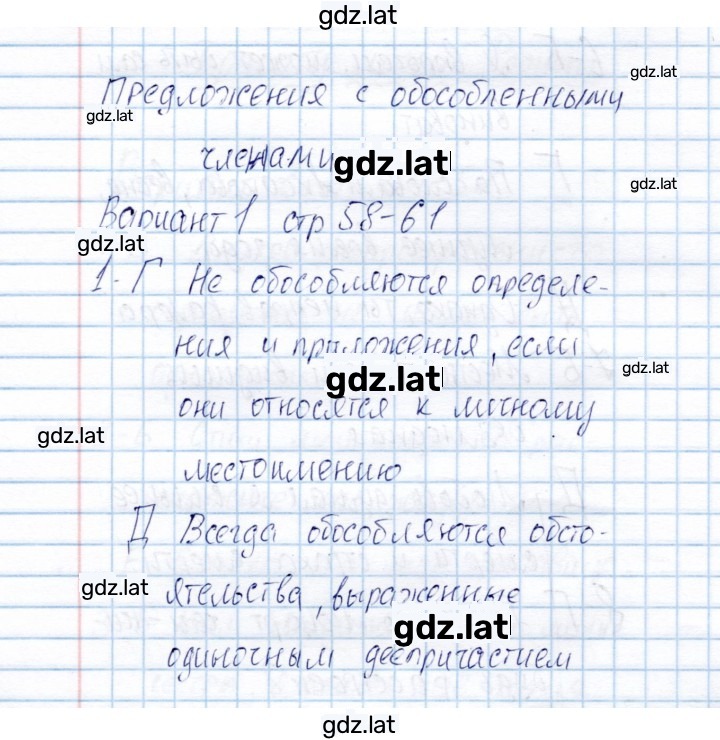 gdz.lat
Предложения с обособленными
gdz.lat
gdz.lat
членами
gdz.lat
gdz.lat
Вариант 1 стр 58-61
gdz.lat
1. Г Не обособляются определе-
ния и приложения, если
gdz.lat
gdz.lat
они относятся к личному
gdz.lat
местоимению
Д Всегда обособляются обсто-
gdz.lat
ятельства, выраженные
gdz.lat
одиночным деепричастием
gdz.lat